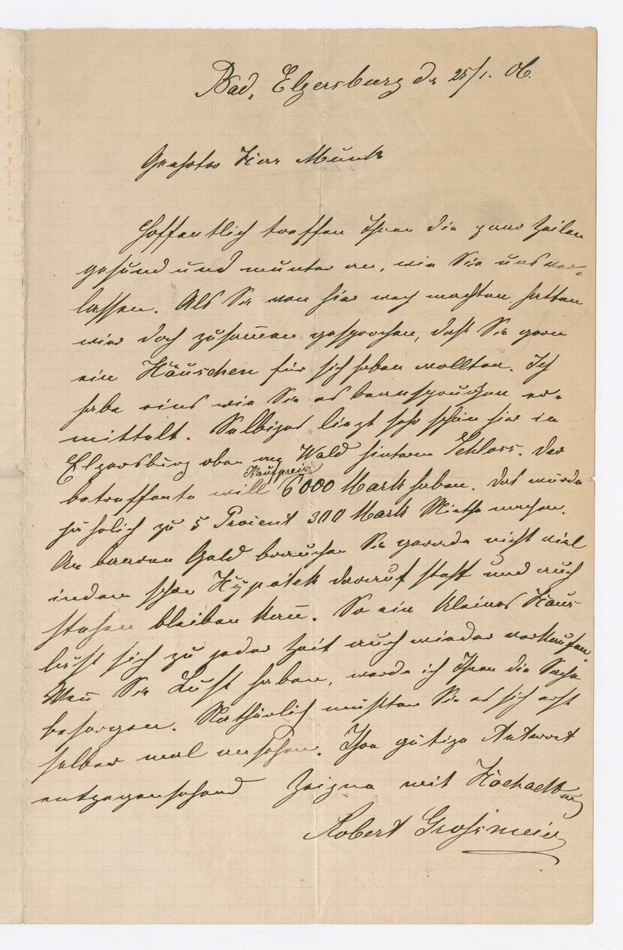 Bad, Elgersburg d. 25/1. 06.
Geehrter Herr Munk
Hoffentlich treffen Ihnen die paar Zeilen
gesund und munter an, wie Sie uns ver-
lassen. Als Sie von hier weg machten hatten
wir doch zusammen gesprochen, daß Sie gern
ein Häuschen für sich haben wollten. Ich
habe eins wie Sie es beanspruchen er-
mittelt. Selbiges liegt sehr schön hier in
Elgersburg oben am Wald hinterm Schloss. Der
Kaufpreis
betreffende will 6000 Mark haben. Das würde
jährlich zu 5 Procent 300 Mark Miethe machen.
An baaren Geld brauchen Sie gerade nicht viel
indem schon Hypotek darauf steht und auch
stehen bleiben kann. So ein kleines Haus
läßt sich zu jeder Zeit auch wieder verkaufen.
Wenn Sie Lust haben, werde ich Ihnen die Sache
besorgen. Nathürlich müßten Sie es sich erst
selber mal ansehen. Ihre gütige Antwort
entgegensehend Zeigne mit Hochachtung
Robert Grosimeier